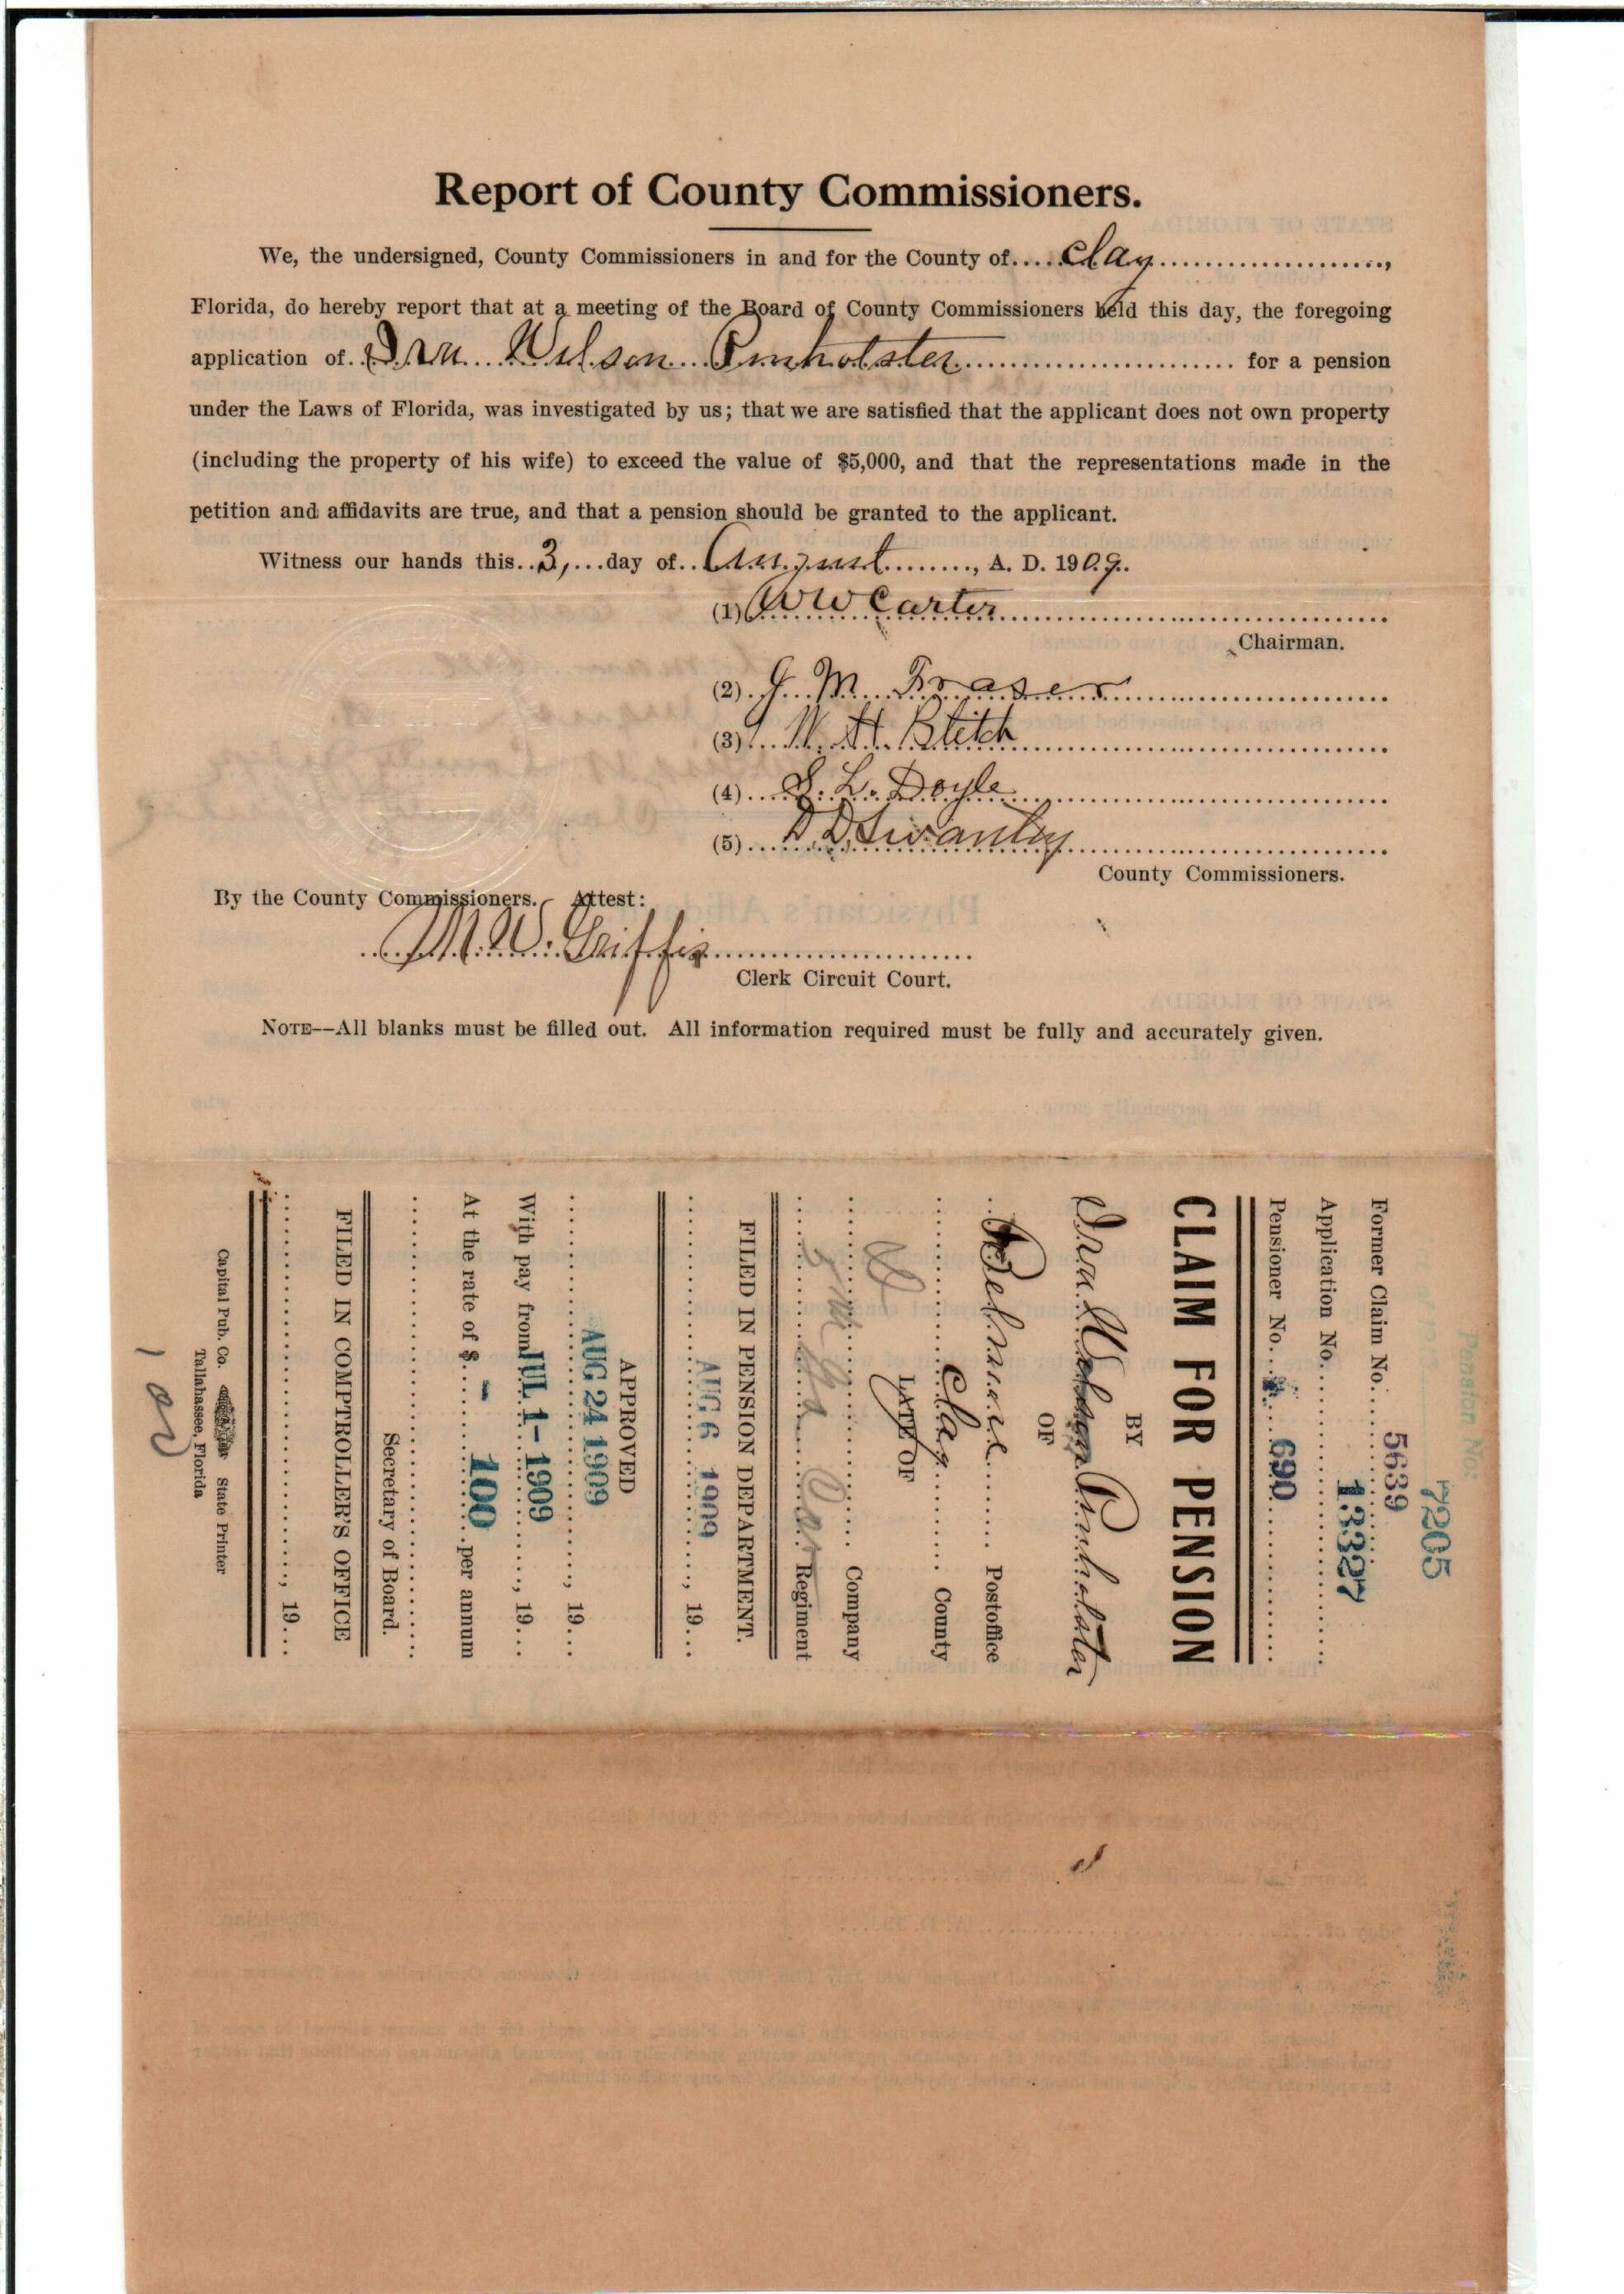 Report of County Commissioners.
We, the undersigned, County Commissioners in and for the County of.....Clay.....................,
Florida, do hereby report that at a meeting of the Board of County Commissioners held this day, the foregoing
application of..Ira Wilson Penholster............................ for a pension
under the Laws of Florida, was investigated by us; that we are satisfied that the applicant does not own property
(including the property of his wife) to exceed the value of $5,000, and that the representations made in the
petition and affidavits are true, and that a pension should be granted to the applicant.
Witness our hands this..3,...day of..August........., A. D. 1909..
(1) W W Carter
Chairman.
(2) J. M. Fraser
(3) W. H. Blitch
(4) S. L. Doyle
(5) D D
County Commissioners.
By the County Commissioners. Attest:
M. W. Griffis
Clerk Circuit Court.
NOTE--All blanks must be filled out. All information required must be fully and accurately given.
Pension No:
7205
Former Claim No. 5639
Application No. 13327
Pensioner No. 690
CLAIM FOR PENSION
BY
Ira Wilson Penholster
OF
Belmore Postoffice
Clay County
LATE OF
Company
Regiment
FILED IN PENSION DEPARTMENT.
AUG 6 1909, 19...
APPROVED
AUG 24 1909, 19...
With pay from JUL 1 - 1909, 19...
At the rate of $ - 100 per annum
Secretary of Board.
FILED IN COMPTROLLER'S OFFICE
, 19...
Capital Pub. Co. State Printer
Tallahassee, Florida